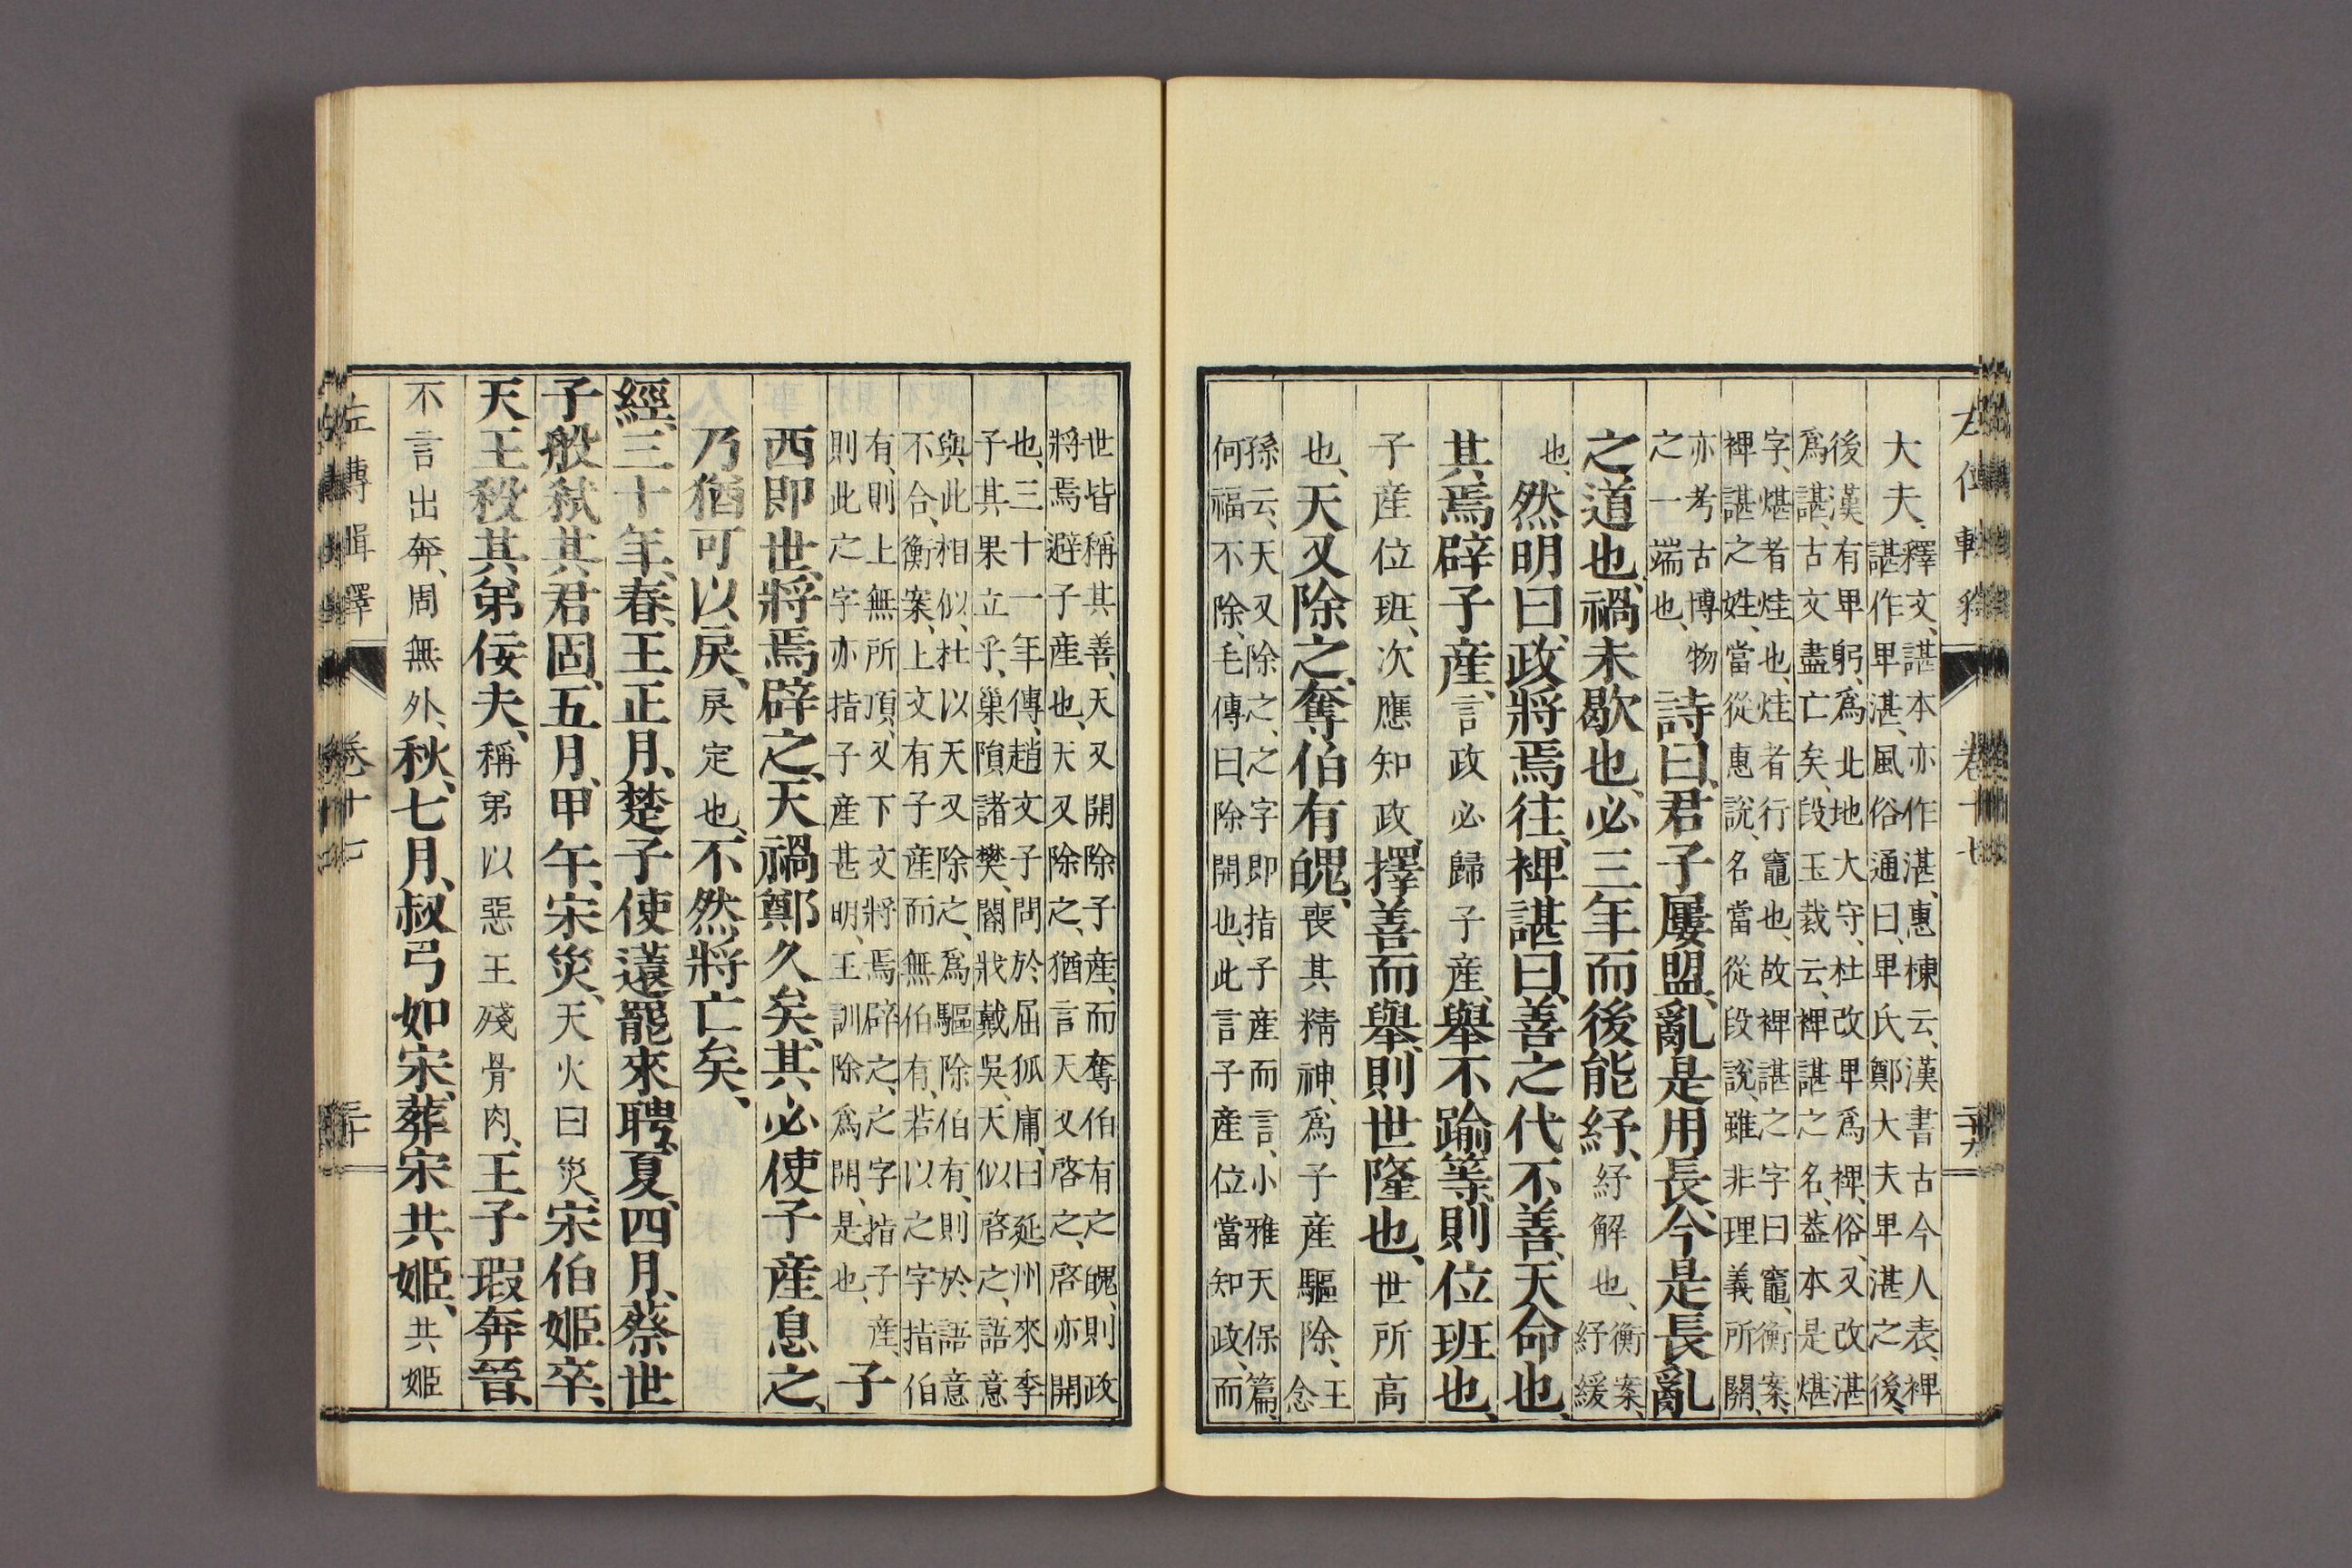 左傳輯釋 卷十七 二十九
大夫、釋文、諶本亦作湛、惠棟云、漢書古今人表、裨
諶作卑湛、風俗通曰、卑氏鄭大夫卑湛之後、
後漢有卑躬、爲北地大守、杜改卑爲裨、俗又改湛
爲諶、古文盡亡矣、段玉裁云、裨諶之名、葢本是煁
字、煁者烓也、烓者行竈也、故裨諶之字曰竈、衡案、
裨諶之姓、當從惠說、名當從段說、雖非理義所關、
亦考古博物
之一端也、詩曰、君子屢盟、亂是用長、今是長亂
之道也、禍未歇也、必三年而後能紓、紓解也、衡案、
紓緩
也、然明曰、政將焉往、裨諶曰、善之代不善、天命也、
其焉辟子產、言政必歸子產、舉不踰等、則位班也、
子產位班、次應知政、擇善而舉、則世隆也、世所高
也、天又除之、奪伯有魄、喪其精神、爲子產驅除、王
念
孫云、天又除之、之字即指子產而言、小雅天保篇、
何福不除、毛傳曰、除開也、此言子產位當知政、而
世皆稱其善、天又開除子產、而奪伯有之魄、則政
將焉避子產也、天又除之、猶言天又啓之、啓亦開
也、三十一年傳、趙文子問於屈狐庸、曰延州來季
子其果立乎、巢隕諸樊、閽戕戴吳、天似啓之、語意
與此相似、杜以天又除之、爲驅除伯有、則於語意
不合、衡案、上文有子產而無伯有、若以之字指伯
有、則上無所頂、又下文將焉辟之、之字指子產、
則此之字亦指子產甚明、王訓除爲開、是也、子
西即世、將焉辟之、天禍鄭久矣、其必使子產息之、
乃猶可以戾、戾定也、不然、將亡矣、
經、三十年、春、王正月、楚子使薳罷來聘、夏、四月、蔡世
子般弒其君固、五月、甲午、宋災、天火曰災、宋伯姬卒、
天王殺其弟佞夫、稱弟以惡王殘骨肉、王子瑕奔晉、
不言出奔、周無外、秋、七月、叔弓如宋、葬宋共姬、共姬
左傳輯釋 卷十七 三十